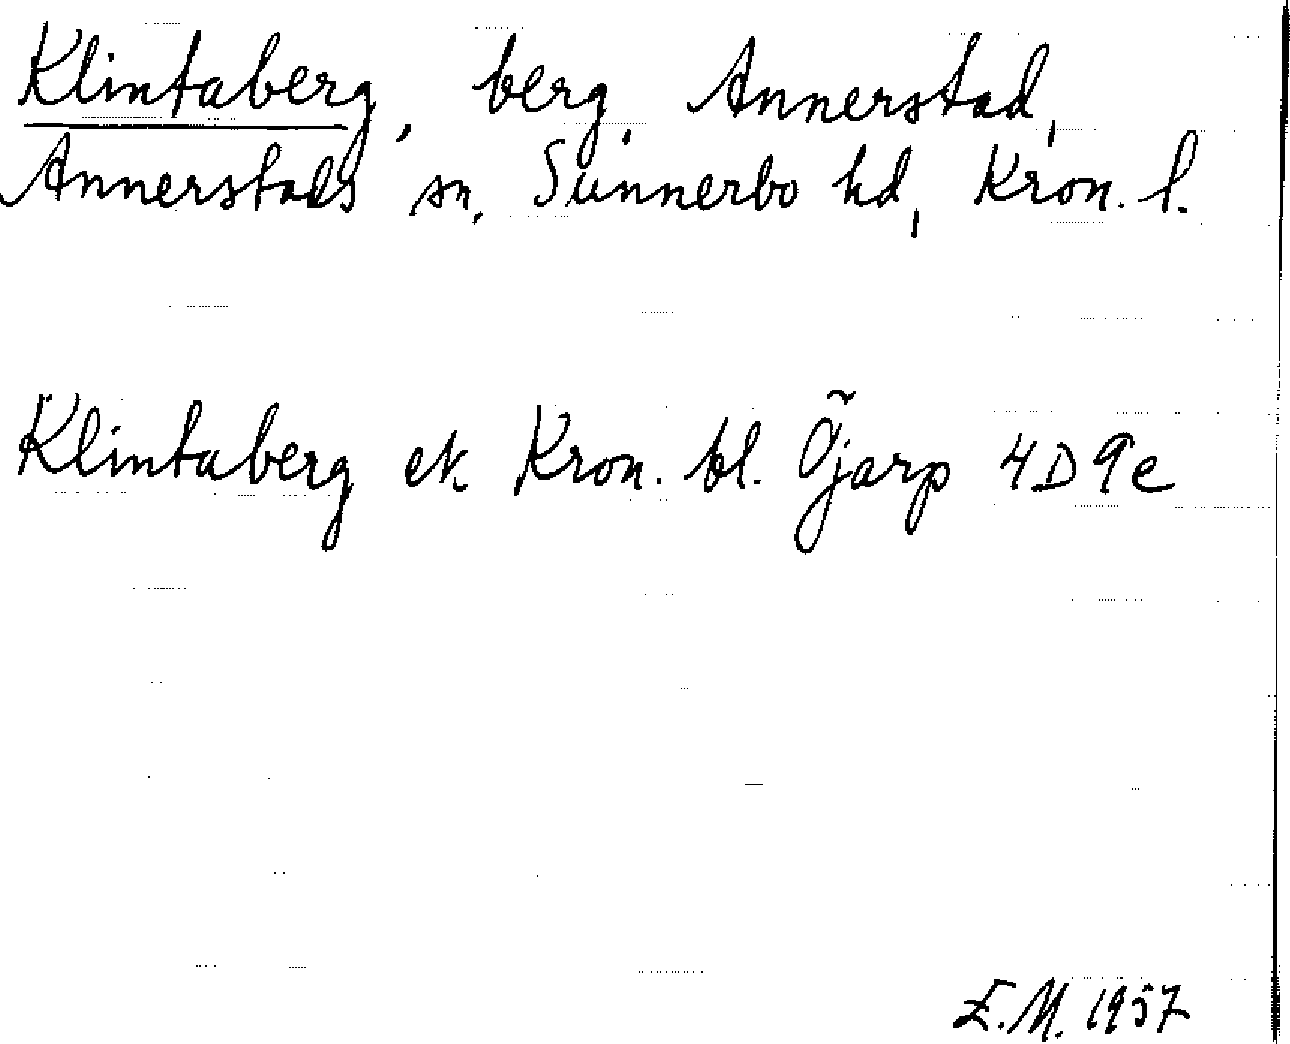 Klintaberg, berg, Annerstad,
Annerstads sn, Sunnerbo hd, Kron. l.
Klintaberg ek Kron. bl. Öjarp 4D9e
E.M. 1957